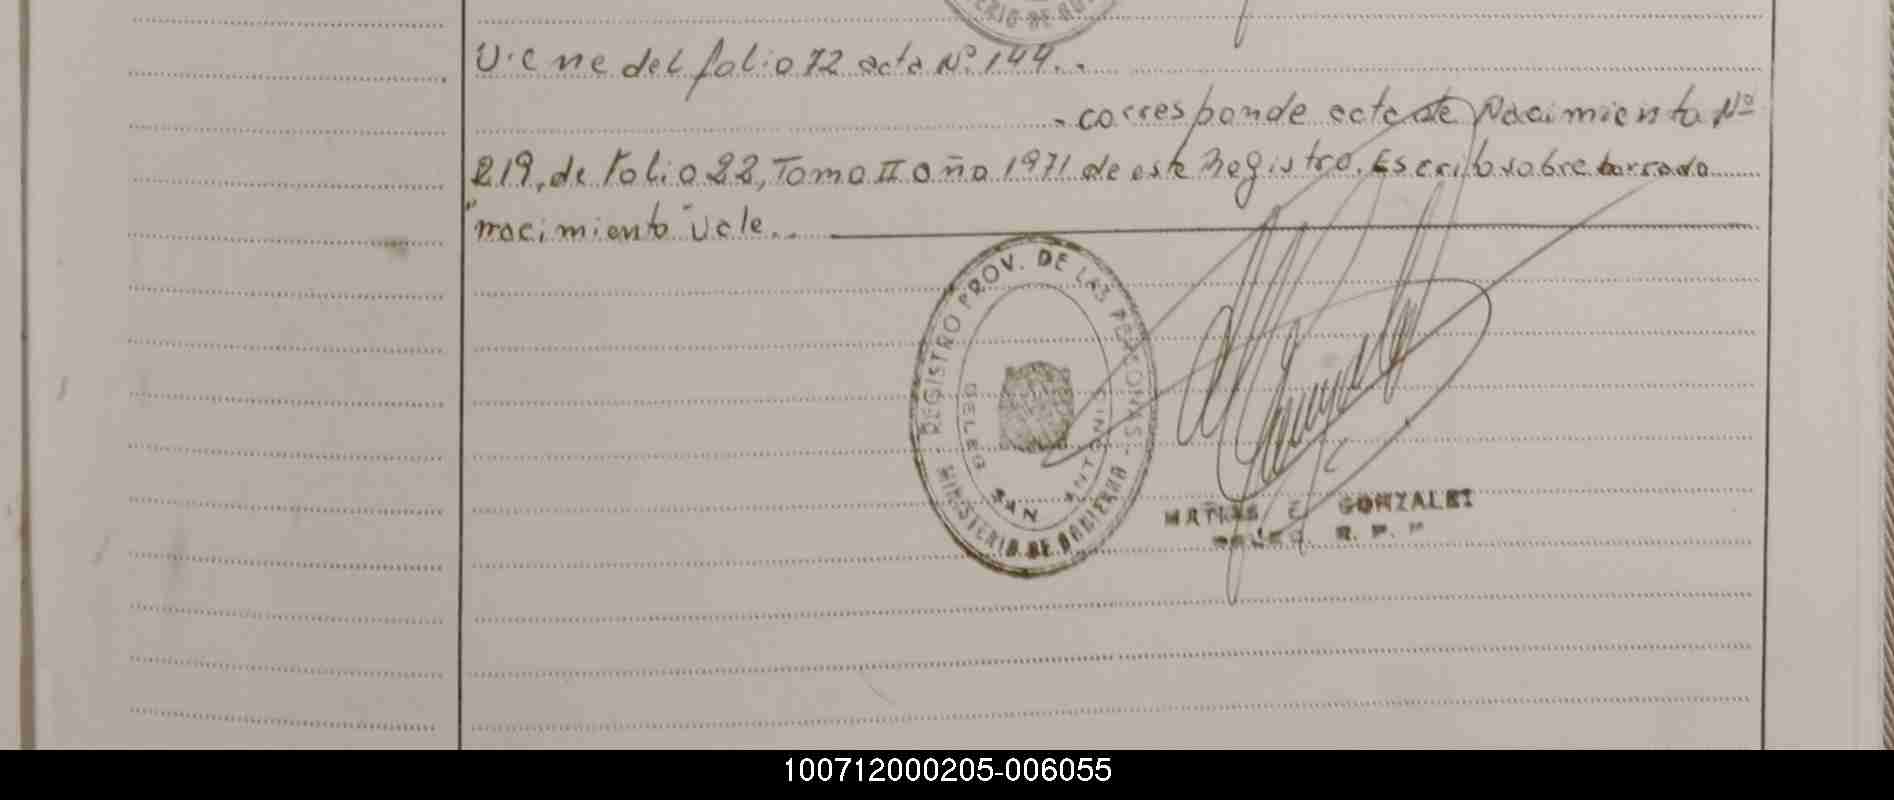 ERIO DE GO
Viene del folio 72 acta Nº 144..
- corresponde acta de Nacimiento Nº
219, de Folio 22, Tomo II año 1971 de este Registro. Escrito sobre borrado
"nacimiento" Vale..
REGISTRO PROV. DE LAS PERSONAS
MINISTERIO DE GOBIERNO
DELEG SAN ANTONIO
MATIAS E. GONZALEZ
DELEG. R. P. P
100712000205-006055